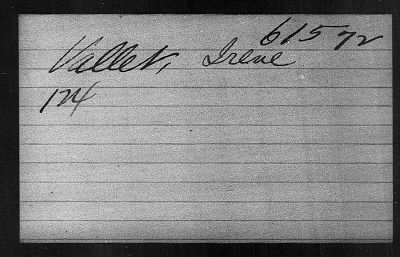 61572
Vallet, Irene
124